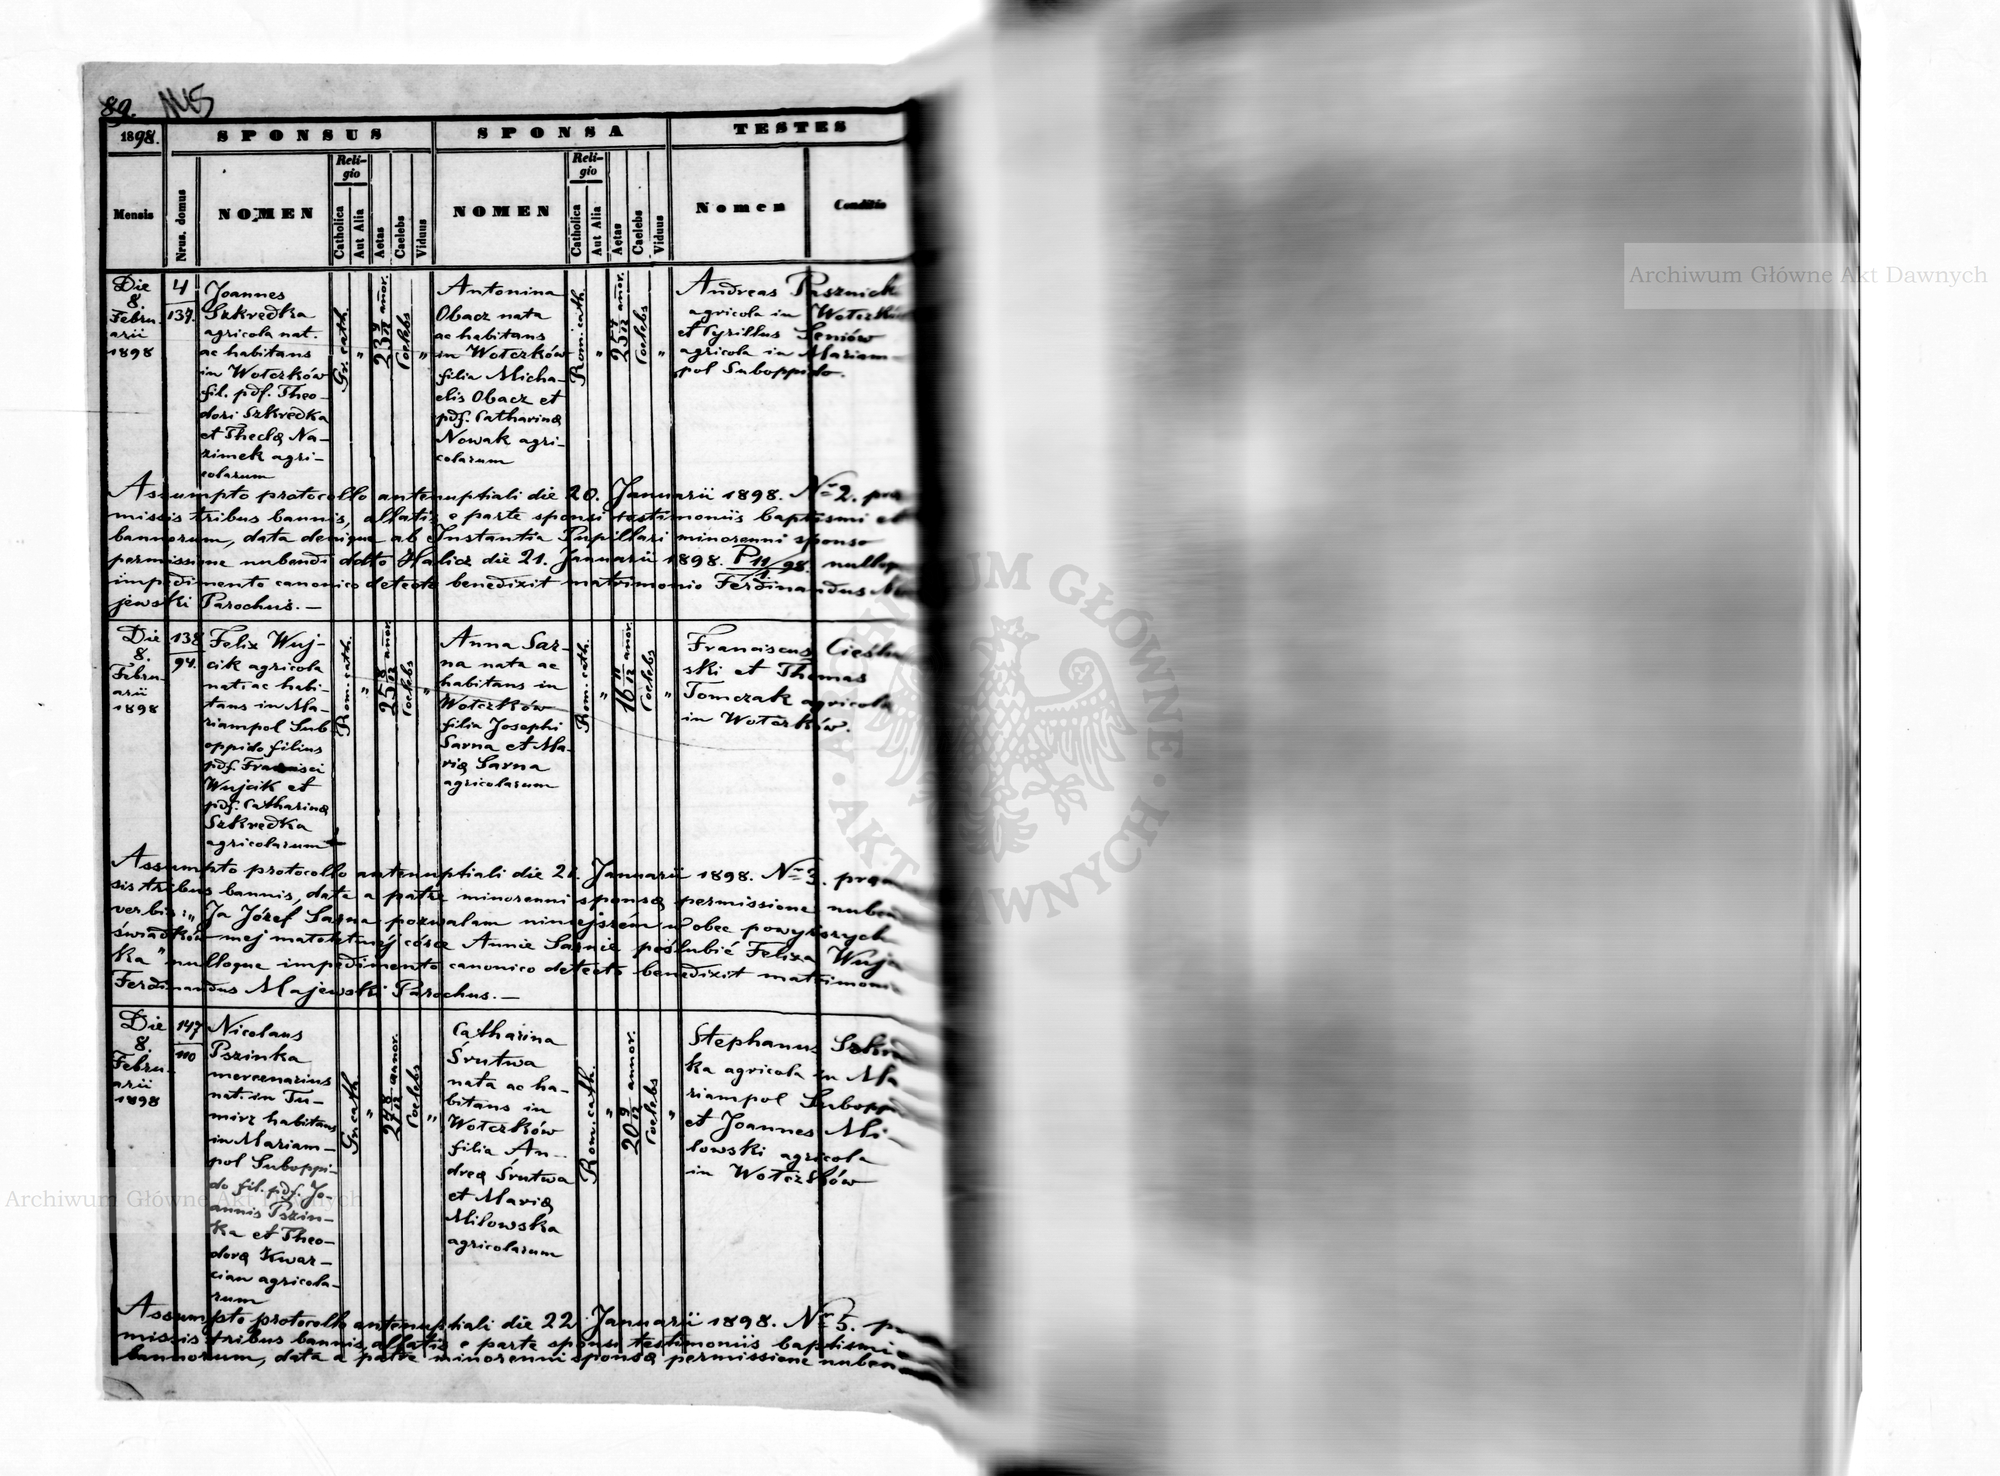 89.
1898.
SPONSUS
SPONSA
TESTES
Mensis
Nrus. domus
NOMEN
Reli-
gio
Catholica
Aut Alia
Aetas
Caelebs
Viduus
NOMEN
Reli-
gio
Catholica
Aut Alia
Aetas
Caelebs
Viduus
Nomen
Conditio
Die
8.
Febru-
arii
1898
4
137.
Joannes
Szkredka
agricola nat.
ac habitans
in Wołczków
fil. pdf. Theo-
dori Szkredka
et Theclę Na-
zimek agri-
colarum
Gr. cath.
"
23 9/12 añor.
Coelebs
"
Antonina
Obacz nata
ac habitans
in Wołczków
filia Micha-
elis Obacz et
pdf. Catharinę
Nowak agri-
colarum
Rom. cath.
"
25 7/12 añor.
Coelebs
"
Andreas
agricola in
et Cyrillus Seniów
agricola in Mariam-
pol Suboppido.
Assumpto protocollo antenuptiali die 20. Januarii 1898. Nr 2.
missis tribus bannis, allatis e parte sponsi testimoniis baptismi et
bannorum, data denique ab Instantia Pupillari minorenni sponso
permissione nubendi ddto Halicz die 21. Januarii 1898. P 11/98/1.
impedimento canonico detecto benedixit matrimonio Ferdinandus
jewski Parochus. —
Die
8.
Febru-
arii
1898
138
94.
Felix Wuj-
cik agricola
nat. ac habi-
tans in Ma-
riampol Sub
oppido filius
pdf. Francisci
Wujcik et
pdf. Catharinę
Szkredka
agricolarum
Rom. cath.
"
25 8/12 añor.
Coelebs
"
Anna Sar-
na nata ac
habitans in
Wołczków
filia Josephi
Sarna et Ma-
rię Sarna
agricolarum
Rom. cath.
"
16 11/12 añor.
Coelebs
"
Franciscus
ski et Thomas
Tomczak agricola
in Wołczków.
Assumpto protocollo antenuptiali die 21. Januarii 1898. Nr 3.
sis tribus bannis, data a patre minorenni sponsę permissione
verbis: „Ja Józef Sarna pozwalam niniejszém w obec powyższych
świadków mej małoletniéj córce Annie Sarnie poślubić Felixa Wuj
ka" nulloque impedimento canonico detecto benedixit matrimoni
Ferdinandus Majewski Parochus. —
Die
8.
Febru-
arii
1898
147
110
Nicolaus
Pszinka
mercenarius
nat. in Tu-
mirz habitans
in Mariam-
pol Suboppi-
do fil. pdf. Jo-
annis Pszin-
ka et Theo-
dorę Kwar-
cian agricola-
rum
Gr. cath.
"
27 8/12 annor.
Coelebs
"
Catharina
Śrutwa
nata ac ha-
bitans in
Wołczków
filia An-
dreę Śrutwa
et Marię
Miłowska
agricolarum
Rom. cath.
"
20 9/12 annor.
Coelebs
"
Stephanus
ka agricola in Ma
riampol Suboppi
et Joannes Mi-
łowski agricola
in Wołczków
Assumpto protocollo antenuptiali die 22. Januarii 1898. Nr 5.
missis tribus bannis, allatis e parte sponsi testimoniis baptismi
bannorum, data a patre minorenni sponsę permissione nuben
Archiwum Główne Akt Dawnych
Archiwum Główne Akt Dawnych
ARCHIWUM GŁÓWNE · AKT DAWNYCH ·